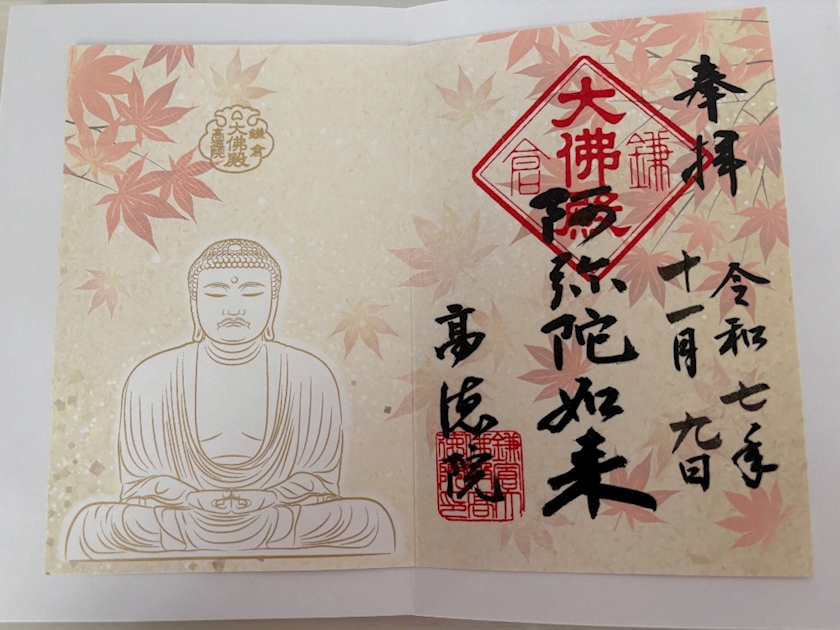 奉拝
令和七年
十一月九日
鎌倉
大佛殿
阿弥陀如来
高徳院
鎌倉
大佛殿
高徳院